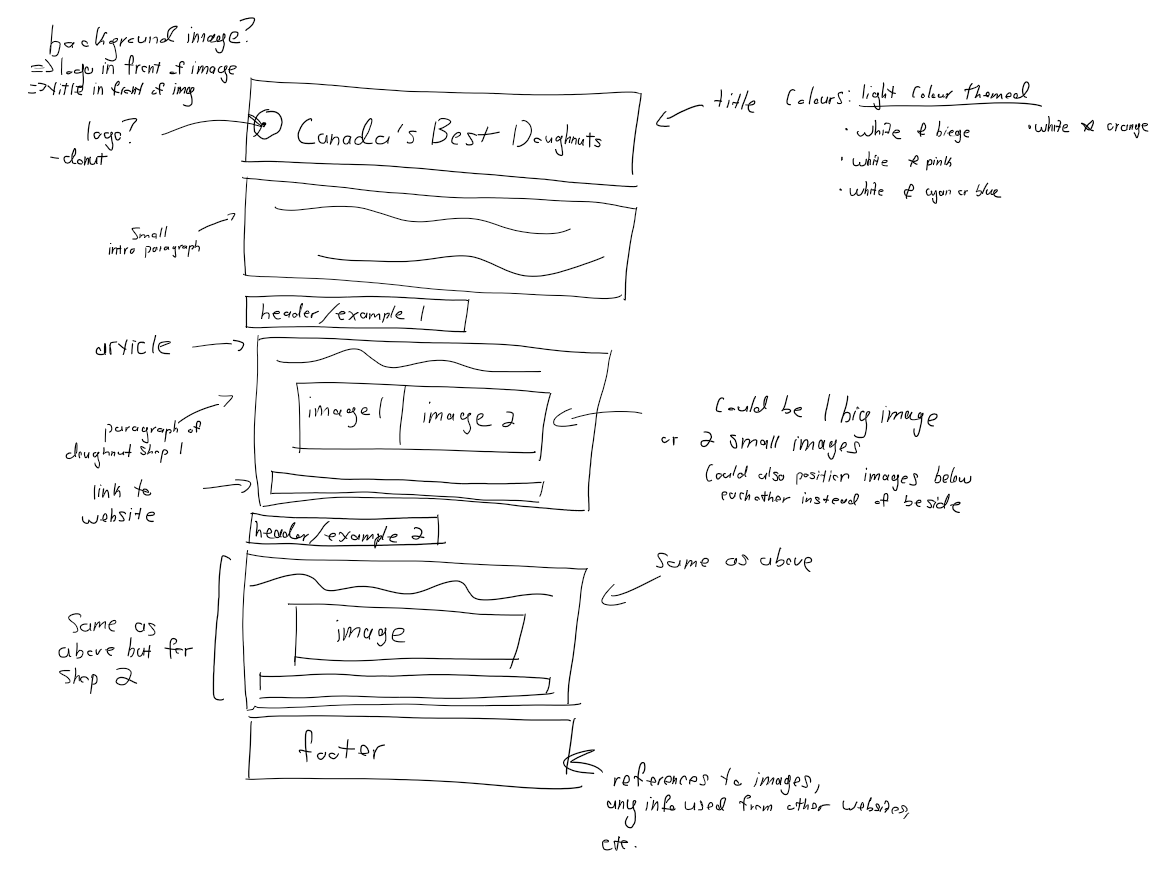 background image?
=> logo in front of image
=> title in front of img
logo?
- donut
Canada's Best Doughnuts
title
Colours: light colour themed
• white & biege
• white & orange
• white & pink
• white & cyan or blue
Small
intro paragraph
header/example 1
article
paragraph of
doughnut shop 1
link to
website
image 1
image 2
Could be 1 big image
or 2 small images
Could also position images below
eachother instead of beside
header/example 2
Same as above
Same as
above but for
Shop 2
image
footer
references to images,
any info used from other websites,
etc.